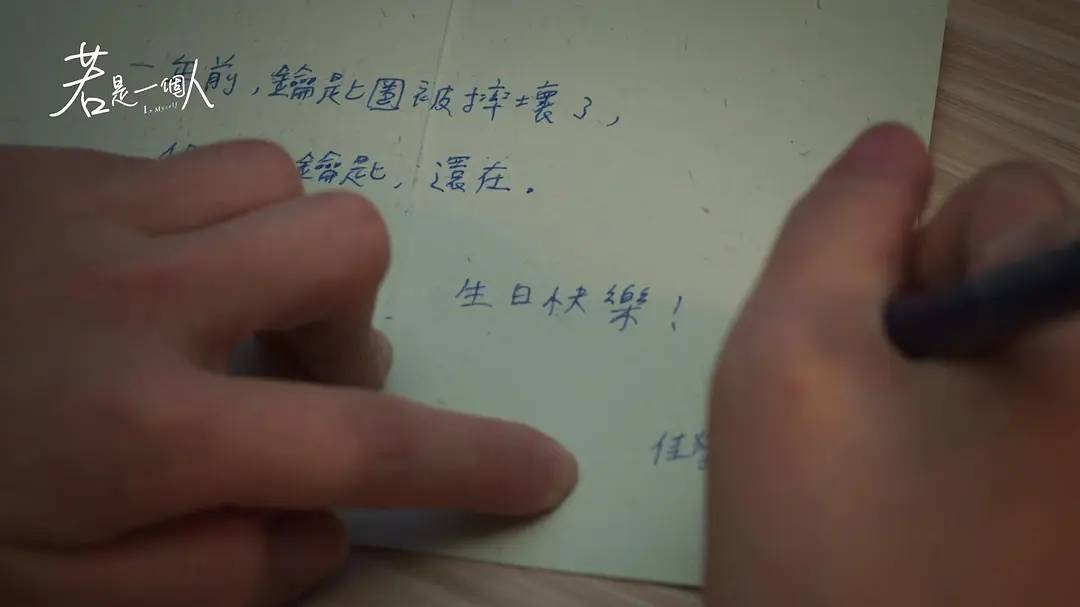 若是一個人
In Myself
年前,鑰匙圈被摔壞了,
鑰匙,還在。
生日快樂!
佳